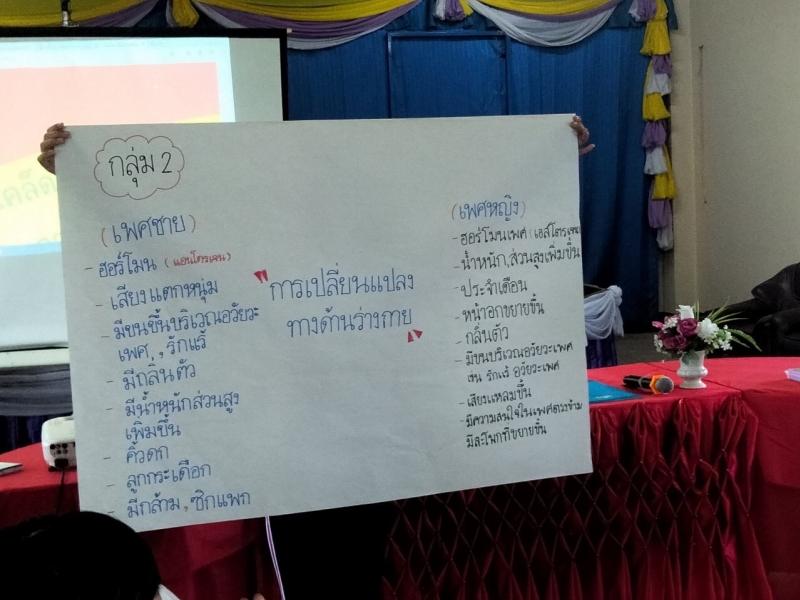 กลุ่ม 2
(เพศชาย)
- ฮอร์โมน (แอนโดรเจน)
- เสียงแตกหนุ่ม
- มีขนขึ้นบริเวณอวัยวะ
เพศ,, รักแร้
- มีกลิ่นตัว
- มีน้ำหนักส่วนสูง
เพิ่มขึ้น
- คิ้วดก
- ลูกกระเดือก
- มีกล้าม, ซิกแพก
"การเปลี่ยนแปลง
ทางด้านร่างกาย"
(เพศหญิง)
- ฮอร์โมนเพศ (เอสโตรเจน)
- น้ำหนัก, ส่วนสูงเพิ่มขึ้น
- ประจำเดือน
- หน้าอกขยายขึ้น
- กลิ่นตัว
- มีขนบริเวณอวัยวะเพศ
เช่น รักแร้ อวัยวะเพศ
- เสียงแหลมขึ้น
- มีความสนใจในเพศตรงข้าม
มีสะโพกที่ขยายขึ้น